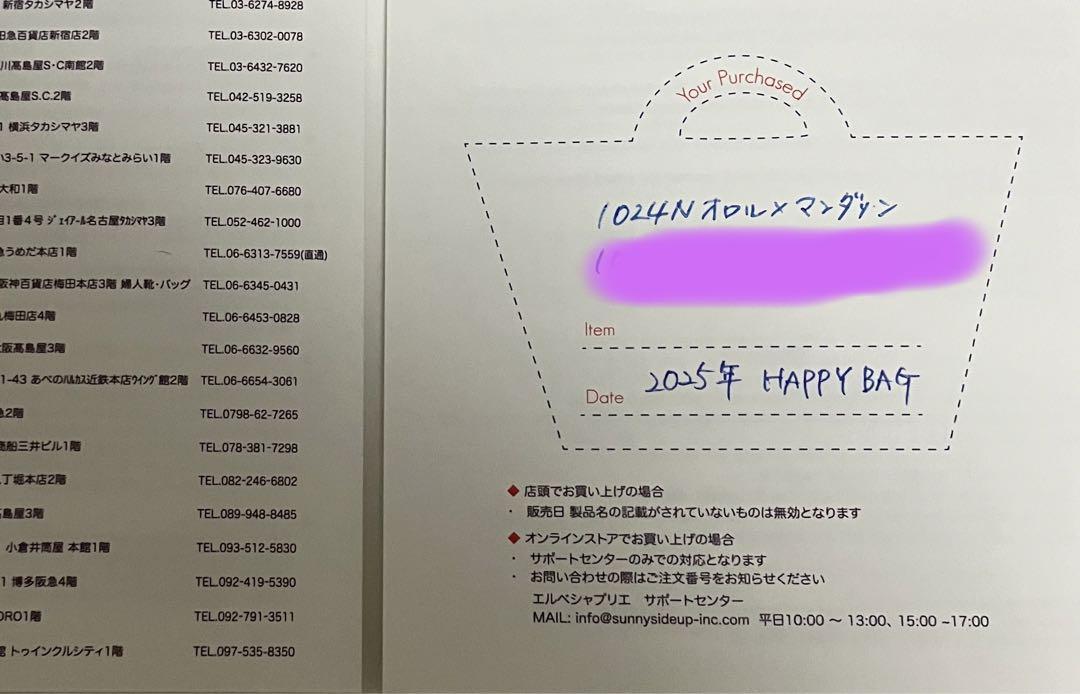 新宿タカシマヤ2階 TEL.03-6274-8928
田急百貨店新宿店2階 TEL.03-6302-0078
川髙島屋S・C南館2階 TEL.03-6432-7620
髙島屋S.C.2階 TEL.042-519-3258
1 横浜タカシマヤ3階 TEL.045-321-3881
3-5-1 マークイズみなとみらい1階 TEL.045-323-9630
大和1階 TEL.076-407-6680
1番4号 ジェイアール名古屋タカシマヤ3階 TEL.052-462-1000
急うめだ本店1階 TEL.06-6313-7559(直通)
阪神百貨店梅田本店3階 婦人靴・バッグ TEL.06-6345-0431
丸梅田店4階 TEL.06-6453-0828
大阪髙島屋3階 TEL.06-6632-9560
1-43 あべのハルカス近鉄本店ウイング館2階 TEL.06-6654-3061
急2階 TEL.0798-62-7265
商船三井ビル1階 TEL.078-381-7298
丁堀本店2階 TEL.082-246-6802
髙島屋3階 TEL.089-948-8485
小倉井筒屋 本館1階 TEL.093-512-5830
1 博多阪急4階 TEL.092-419-5390
ORO1階 TEL.092-791-3511
トゥインクルシティ1階 TEL.097-535-8350
Your Purchased
1024N オロル×マンダリン
Item
Date 2025年 HAPPY BAG
◆ 店頭でお買い上げの場合
・ 販売日 製品名の記載がされていないものは無効となります
◆ オンラインストアでお買い上げの場合
・ サポートセンターのみでの対応となります
・ お問い合わせの際はご注文番号をお知らせください
エルベシャプリエ サポートセンター
MAIL: info@sunnysideup-inc.com 平日10:00 ~ 13:00、15:00 ~17:00